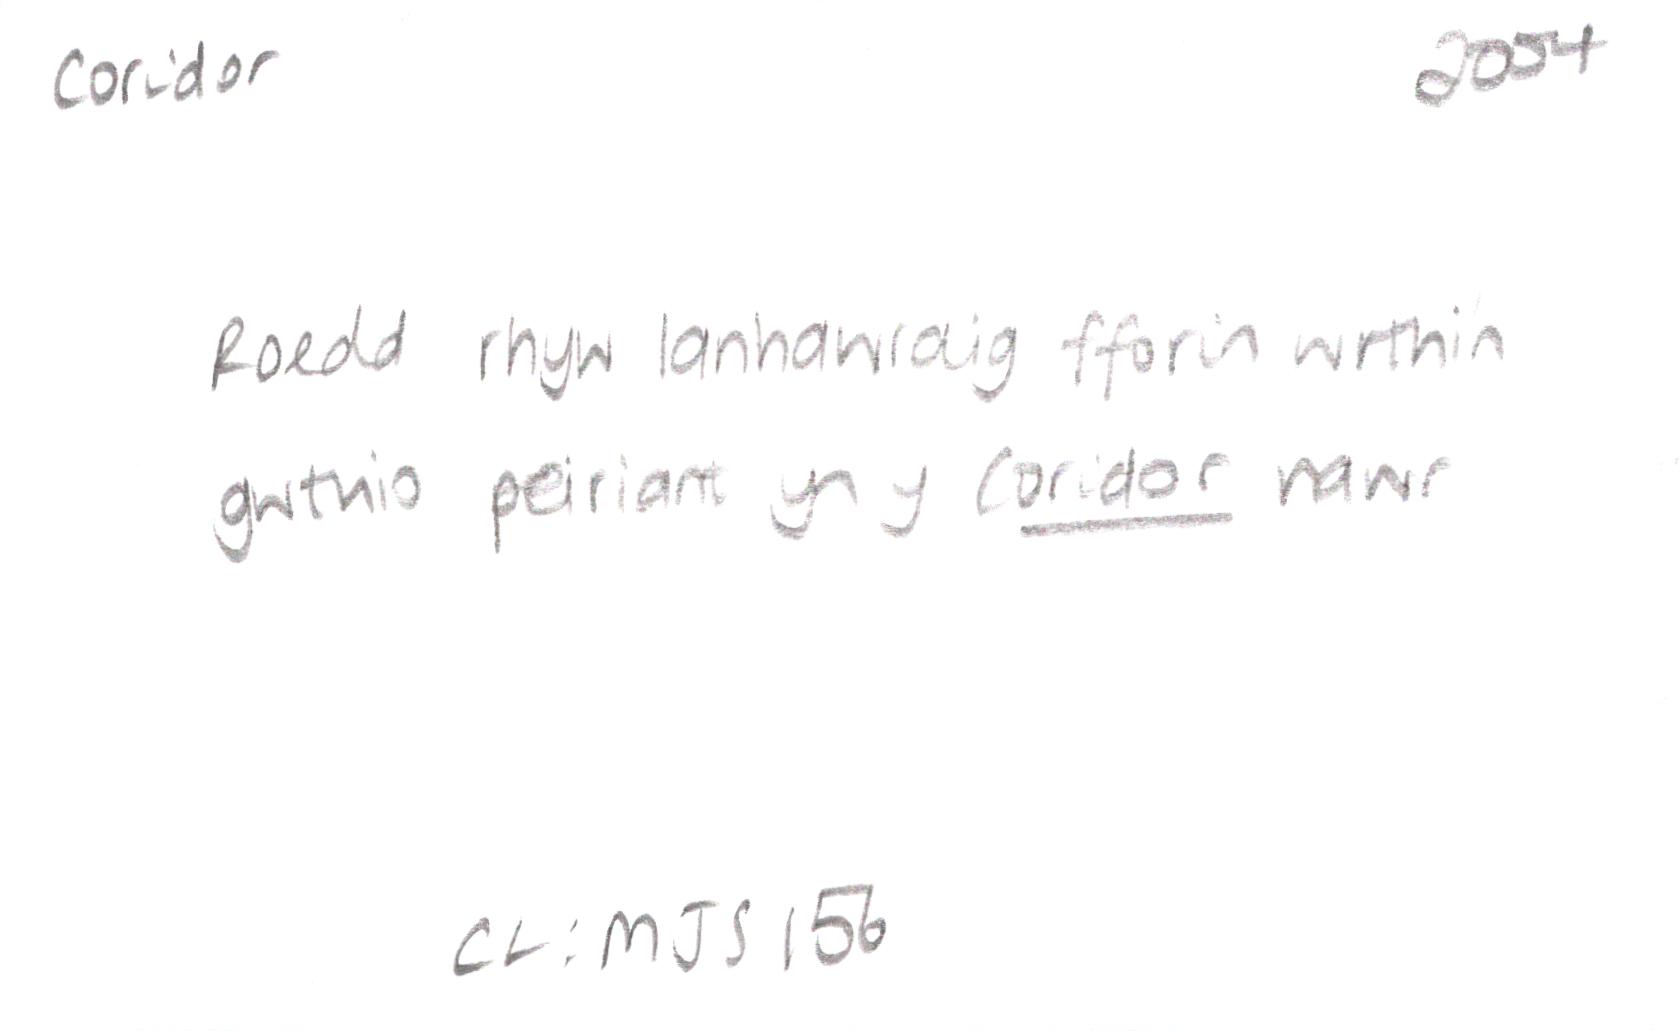 Coridor 2054
Roedd rhyw lanhawraig fforin wrthin
gwthio peiriant yn y Coridor nawr
CL: MJS 156